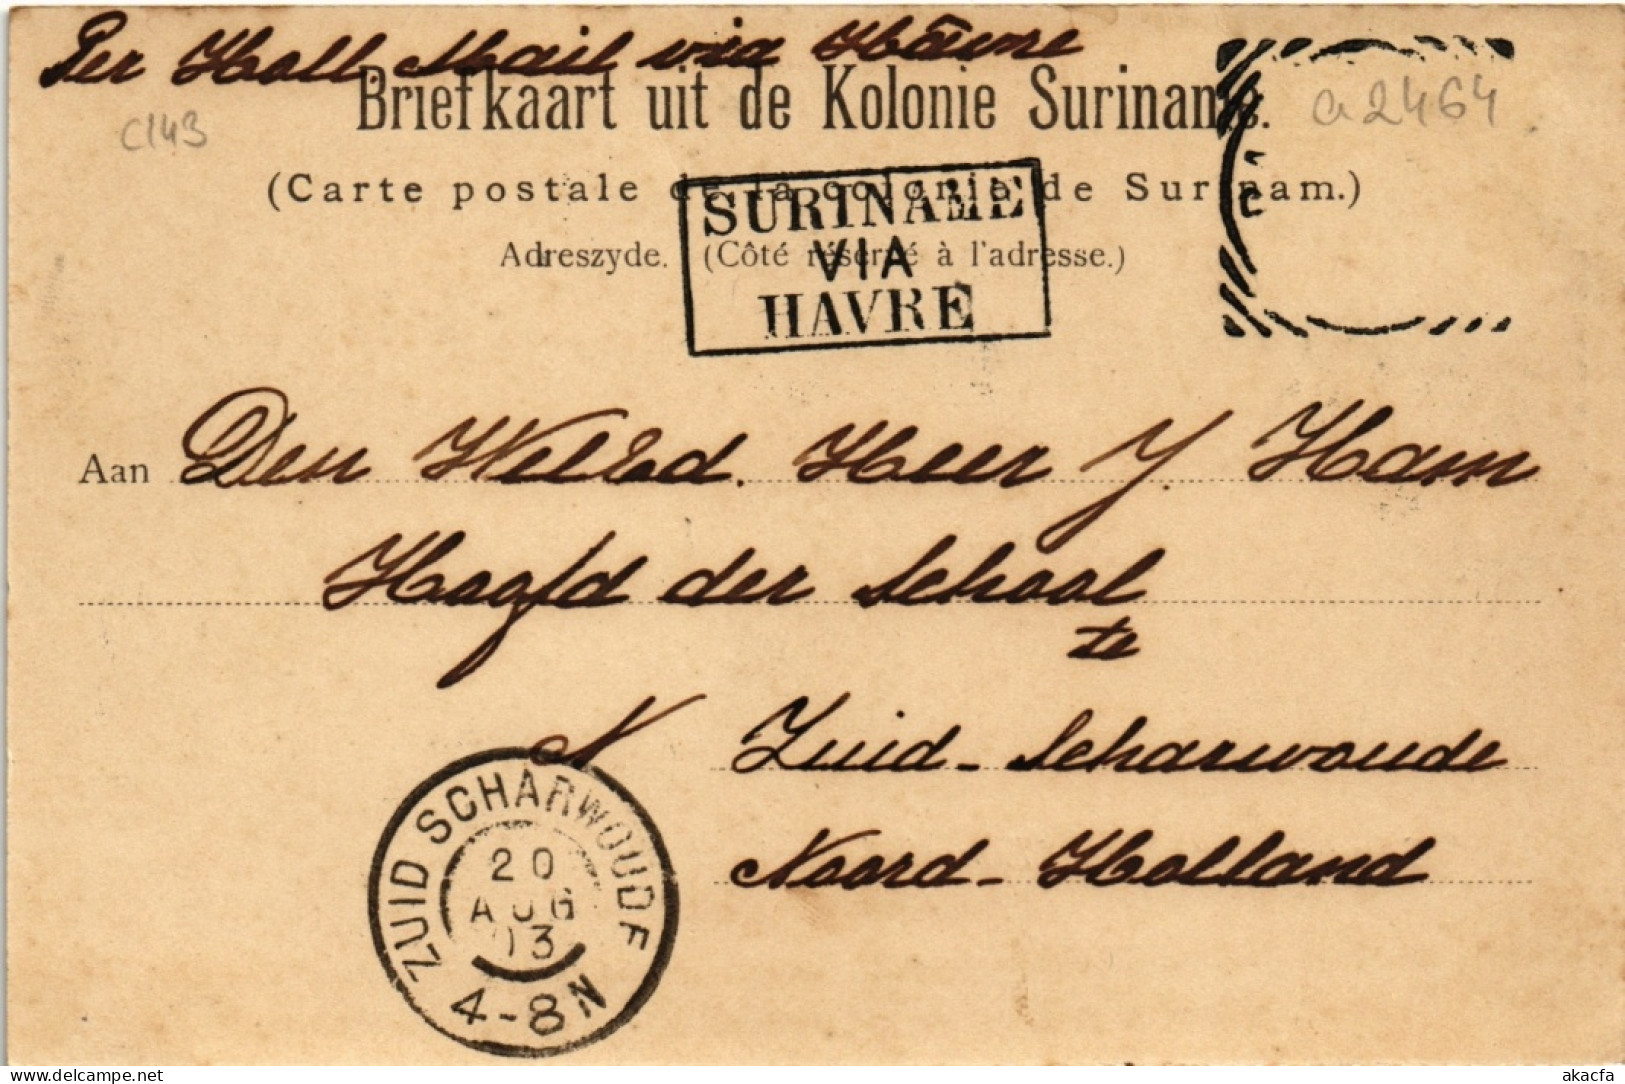 Per Holl. Mail via Hâvre
Briefkaart uit de Kolonie Suriname.
a 2464
C143
(Carte postale de la colonie de Surinam.)
SURINAME
VIA
HAVRE
Adreszyde. (Côté réservé à l'adresse.)
Aan Den WelEd. Heer J. Ham
Hoofd der School
te
N Zuid-Scharwoude
Noord-Holland
ZUID SCHARWOUDE
20
AUG
03
4-8N
akacfa